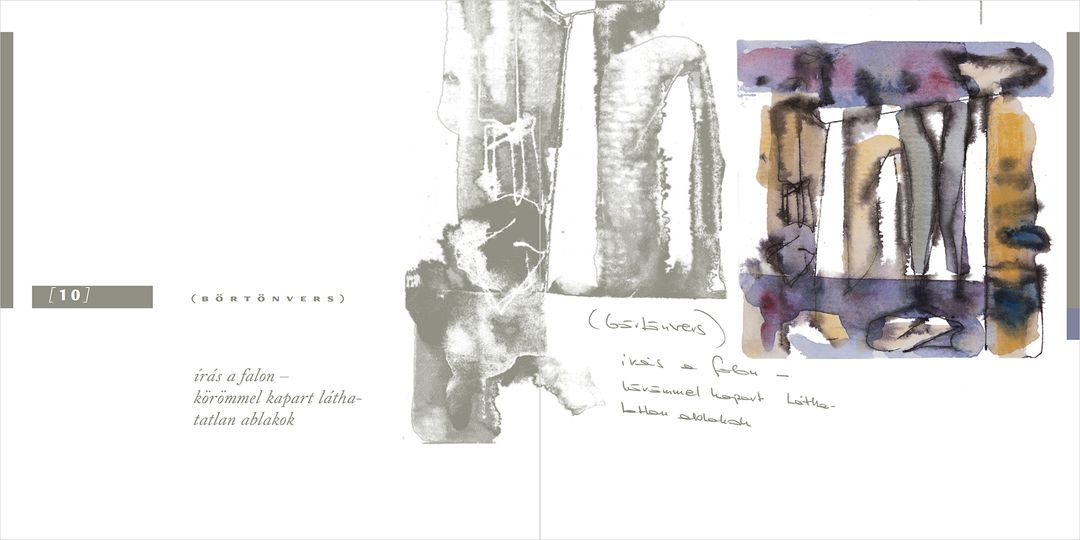 [10]
(BÖRTÖNVERS)
írás a falon –
körömmel kapart látha-
tatlan ablakok
(börtönvers)
írás a falon –
körömmel kapart látha-
tatlan ablakok